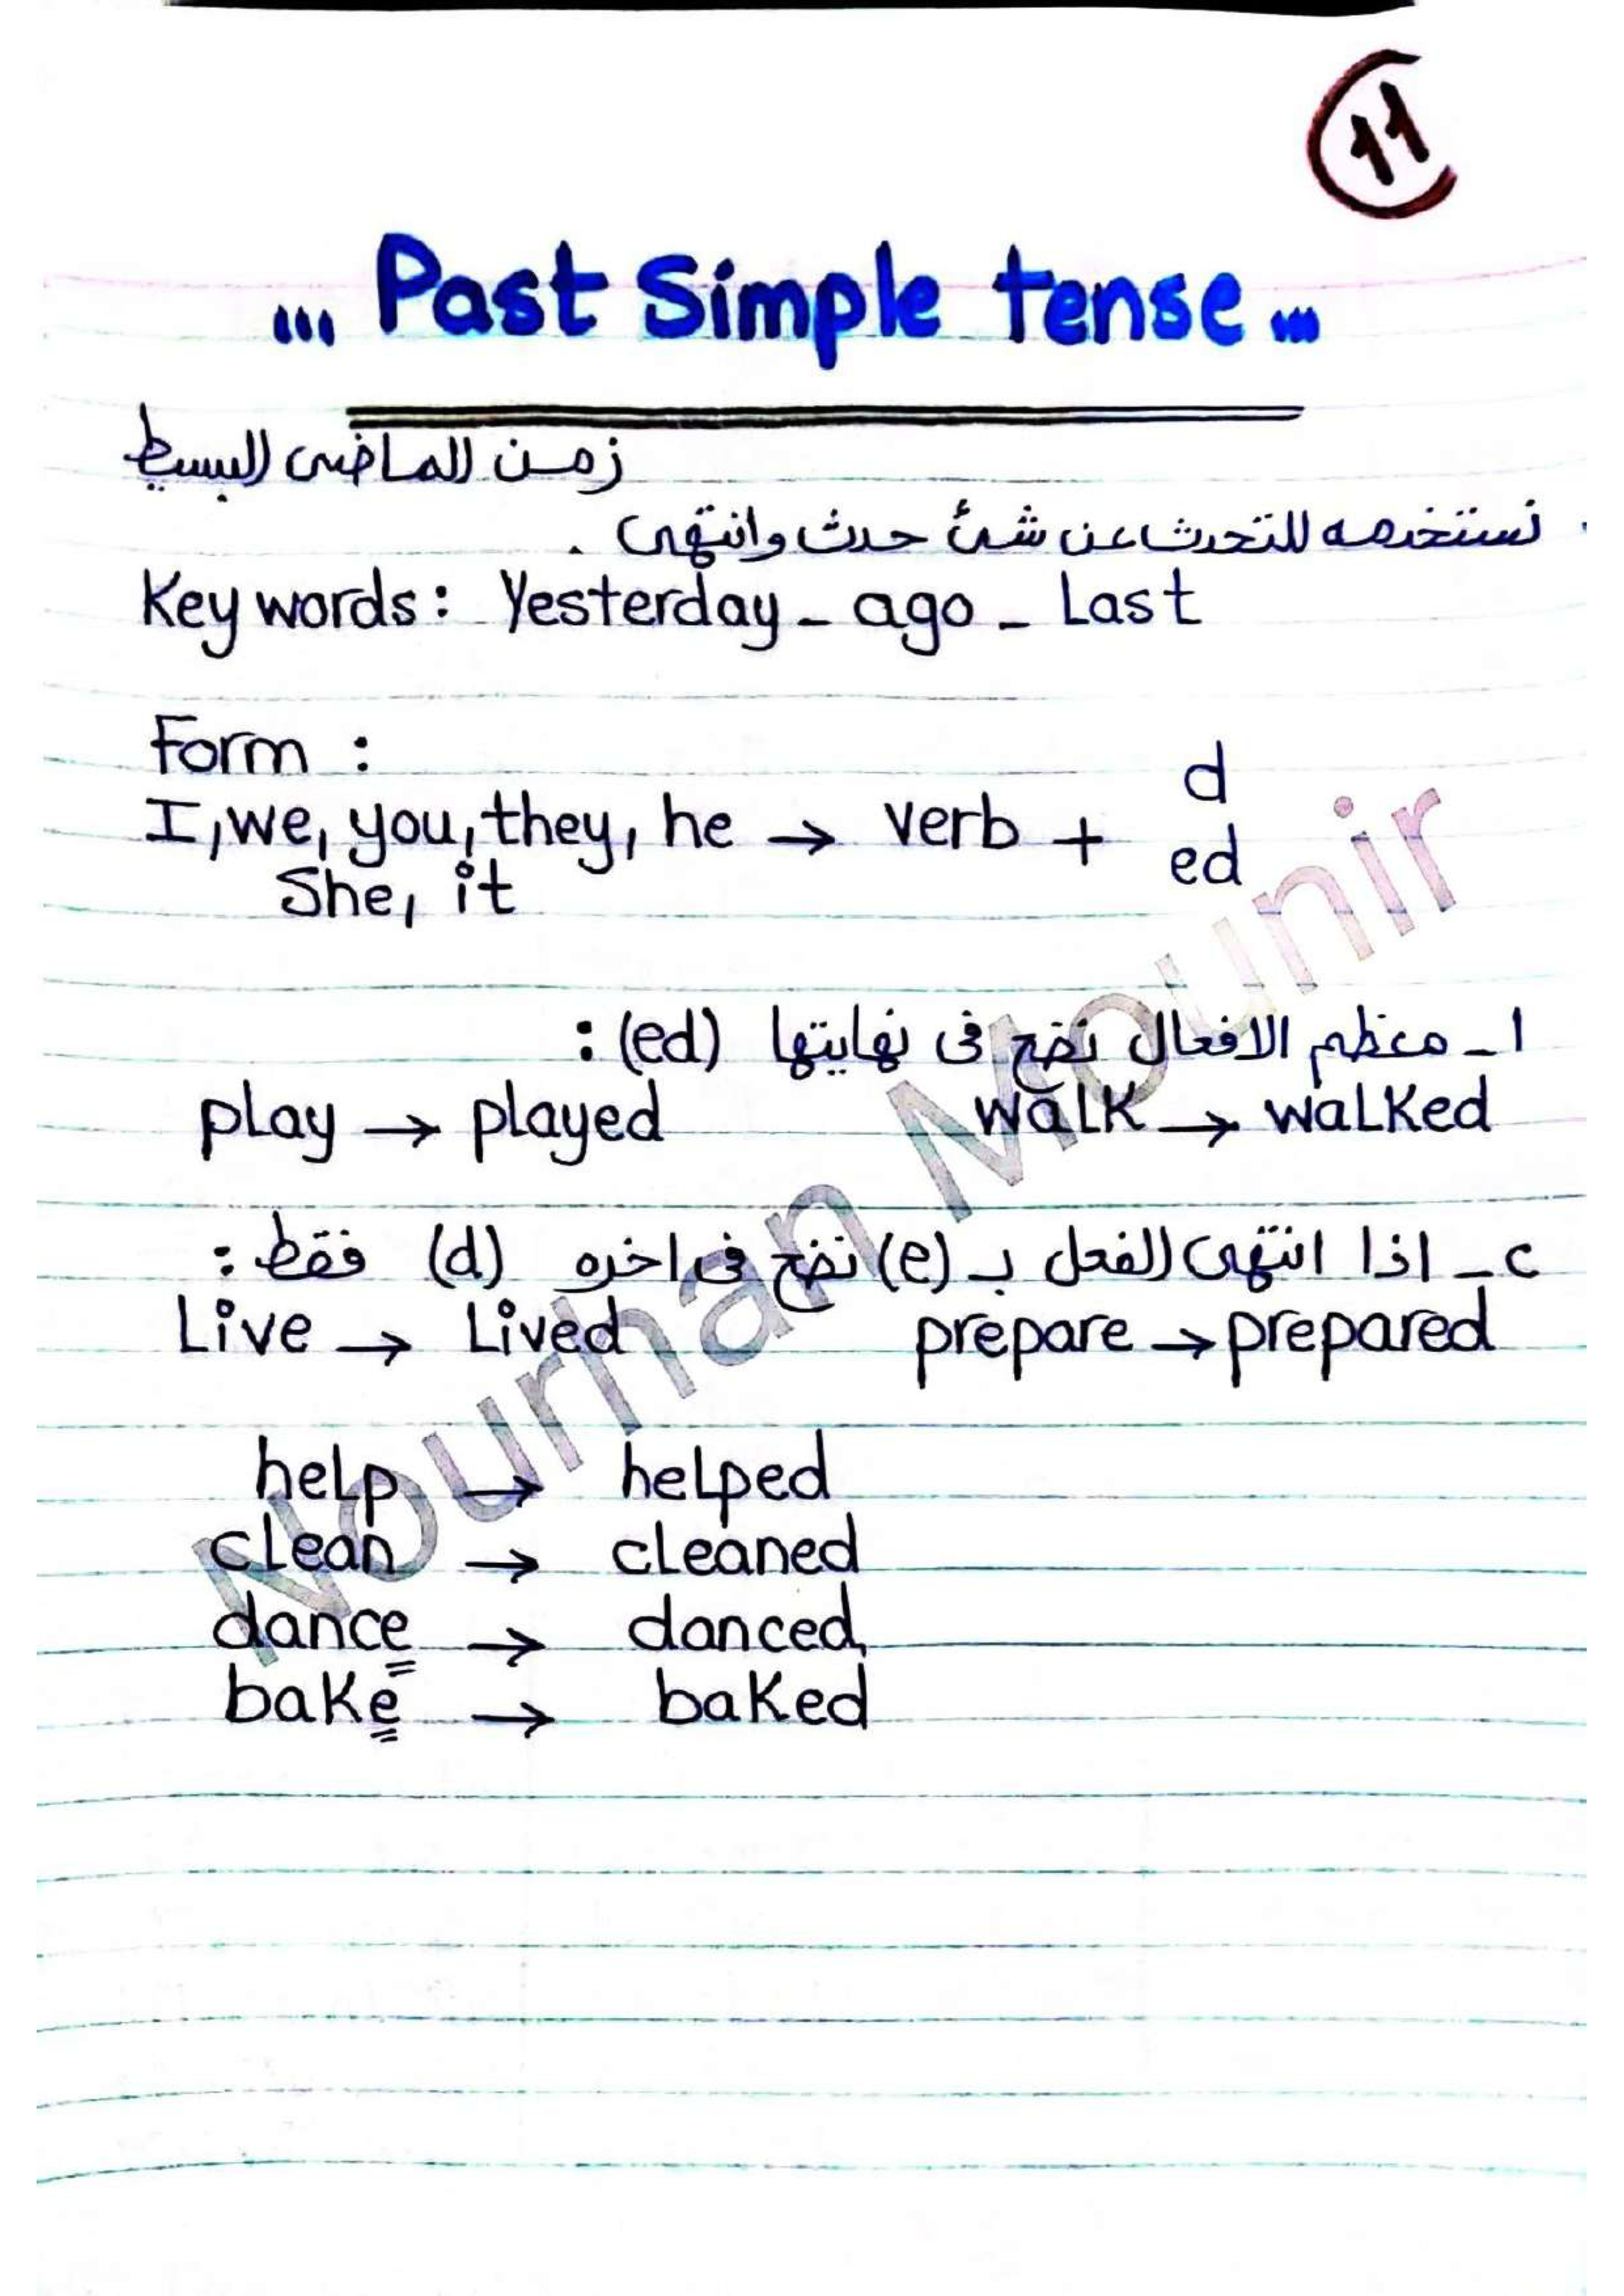 11
... Past Simple tense ...
زمن الماضى البسيط
. نستخدمه للتحدث عن شئ حدث وانتهى .
Key words: Yesterday - ago - Last
Form :
I, we, you, they, he → verb + d
She, it ed
١- معظم الافعال نضع فى نهايتها (ed) :
play → played walk → walked
٢- اذا انتهى الفعل بـ (e) نضع فى اخره (d) فقط :
Live → Lived prepare → prepared
help → helped
clean → cleaned
dance → danced
bake → baked
Nourhan Mounir